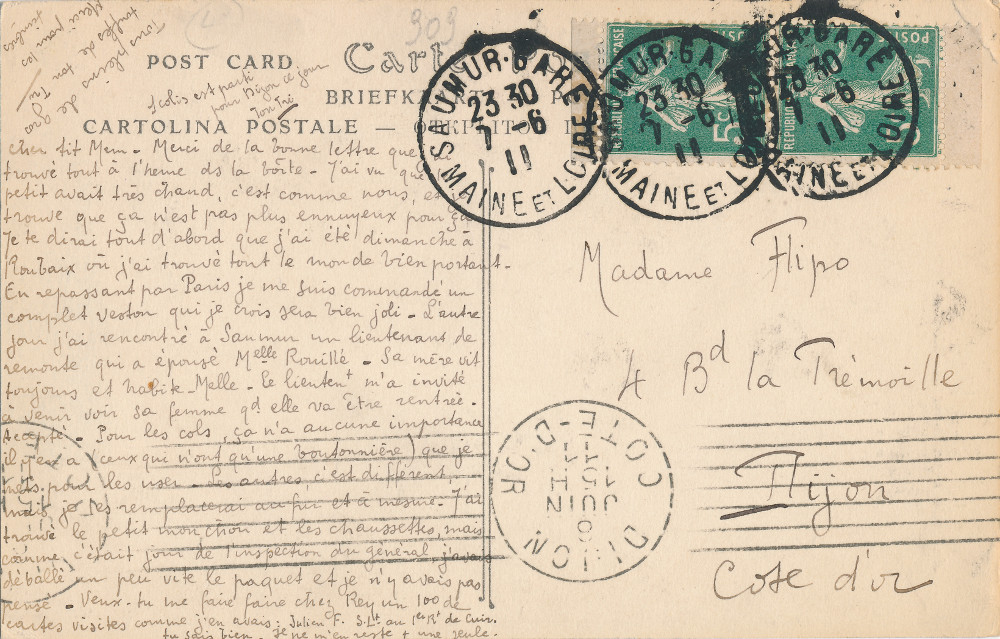 303
POST CARD
BRIEFKA
CARTOLINA POSTALE —
Cher tit Mem - Merci de la bonne lettre que
trouvé tout à l'heure ds la boîte - J'ai vu que
petit avait très chaud, c'est comme nous,
trouve que ça n'est pas plus ennuyeux pour
Je te dirai tout d'abord que j'ai été dimanche à
Roubaix où j'ai trouvé tout le monde bien portant -
En repassant par Paris je me suis commandé un
complet veston qui je crois sera bien joli - L'autre
jour j'ai rencontré à Saumur un lieutenant de
remonte qui a épousé Melle Rouillé - Sa mère vit
toujours et habite Melle - Le lieutent m'a invité
à venir voir sa femme qd elle va être rentrée -
Accepté - Pour les cols, ça n'a aucune importance
il y en a (ceux qui n'ont qu'une boutonnière) que je
mets pour les user - Les autres c'est différent,
mais je les remplacerai au fur et à mesure - J'ai
trouvé le petit monchon et les chaussettes, mais
comme c'était jour de l'inspection du général j'avais
déballé un peu vite le paquet et je n'y avais pas
pensé - Veux-tu me faire faire chez Rey un 100 de
cartes visites comme j'en avais: Julien F. S.Lt au 1er Rt de Cuir.
tu sais bien - Je ne m'en reste + une seule -
Tons plessis de gros
scolis est parti
pour Dijon ce jour
ton Tri
SAUMUR-GARE
23 30
7 -6
11
MAINE ET LOIRE
SAUMUR-GARE
23 30
7 -6
11
MAINE ET LOIRE
23 30
7 -6
11
MAINE ET LOIRE
5c
POSTES
Madame Flipo
4 Bd la Trémoille
Dijon
Cote d'or
DIJON
COTE-D'OR
15 H
JUIN
11